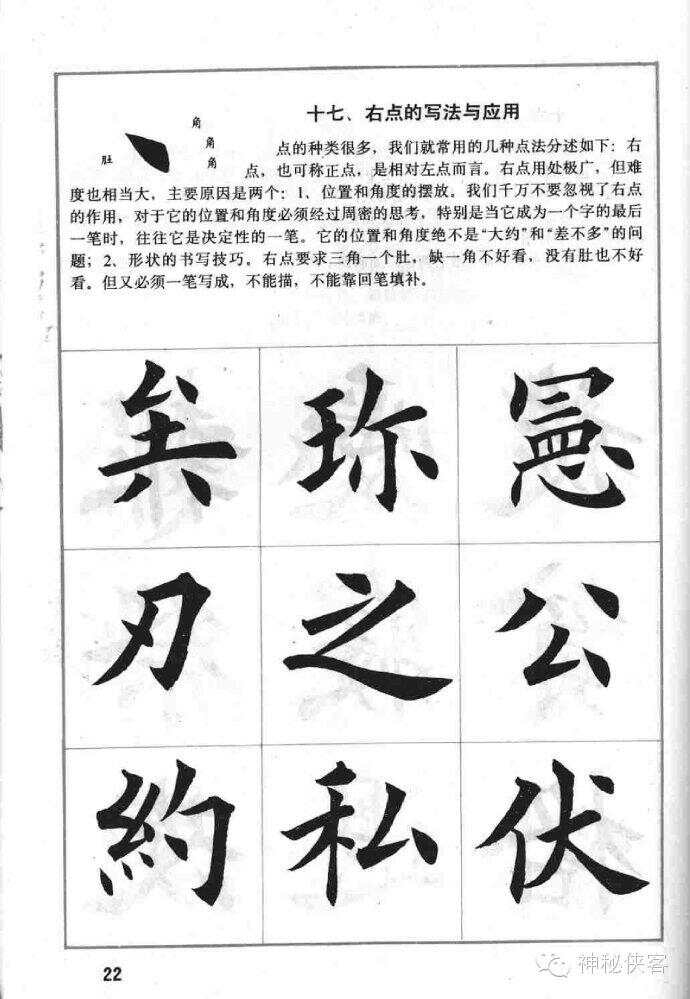 十七、右点的写法与应用
角
肚 角
角
点的种类很多，我们就常用的几种点法分述如下：右
点，也可称正点，是相对左点而言。右点用处极广，但难
度也相当大，主要原因是两个：1、位置和角度的摆放。我们千万不要忽视了右点
的作用，对于它的位置和角度必须经过周密的思考，特别是当它成为一个字的最后
一笔时，往往它是决定性的一笔。它的位置和角度绝不是“大约”和“差不多”的问
题；2、形状的书写技巧。右点要求三角一个肚，缺一角不好看，没有肚也不好
看。但又必须一笔写成，不能描，不能靠回笔填补。
矣 珎 憲
刃 之 公
約 私 伏
22
神秘侠客